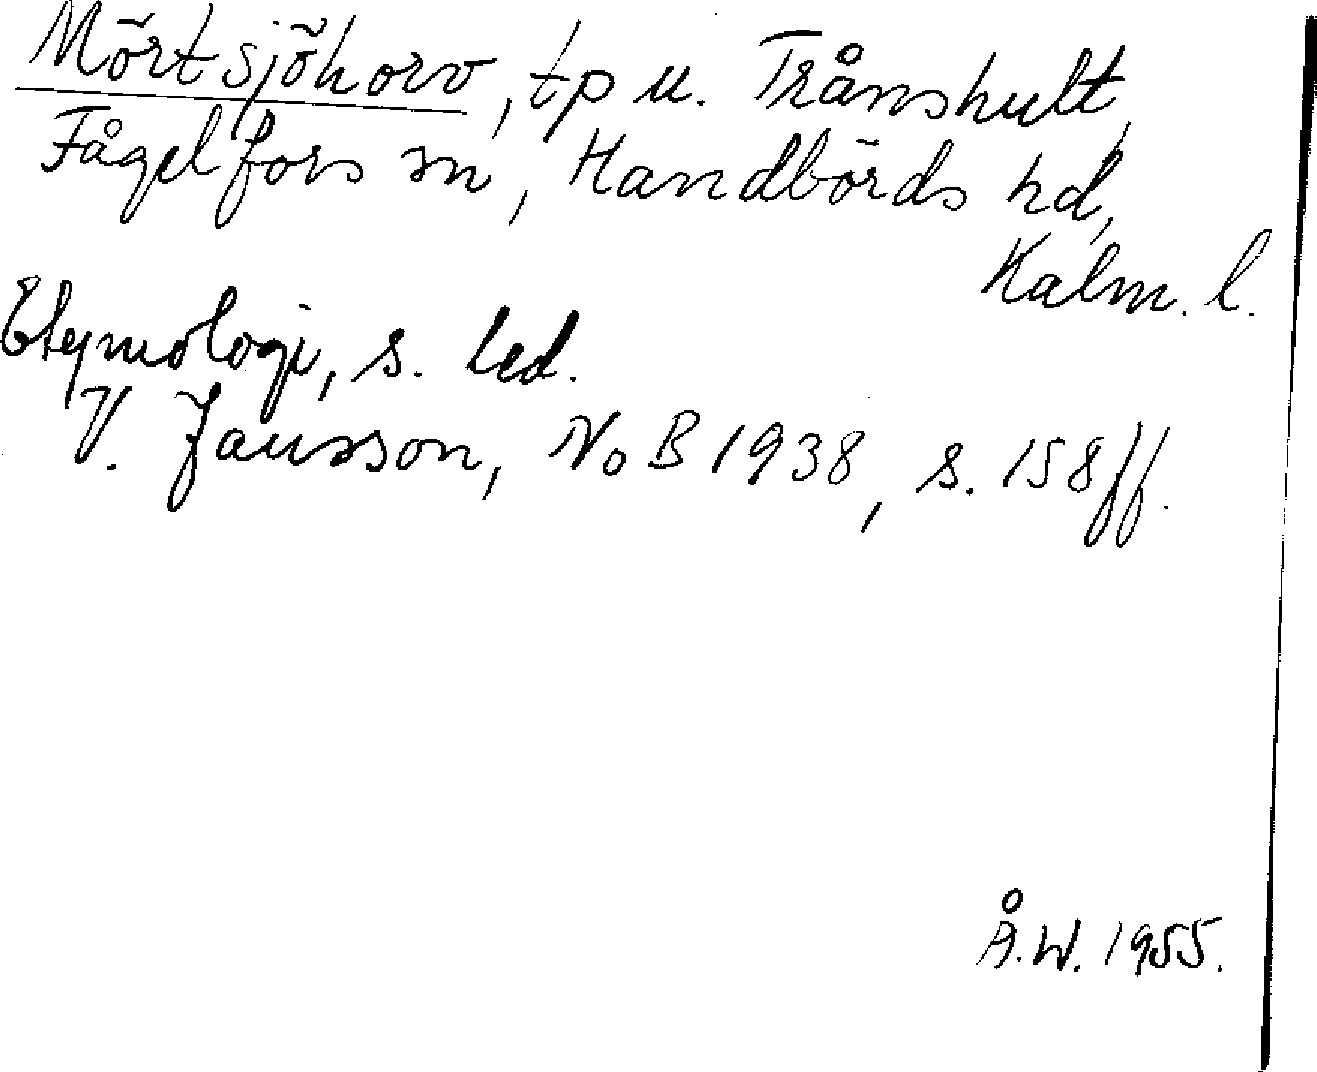 Mörtsjöhorv, tp u. Trånshult,
Fågelfors sn, Handbörds hd,
Kalm. l.
Etymologi, s. led.
V. Jansson, NoB 1938, s. 158 ff.
Å.W. 1955.